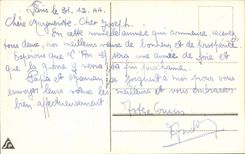 Paris le 31.12.44
Chère Argueritte Cher Joseph
En cette nouvelle année qui commence recevez
vous deux, nos meilleurs vœux de bonheur et de prospérité
espérons que 45 sera une année de joie et
que la guerre y verra sa fin prochaine.
Papa et Maman se joignent a moi pour vous
envoyer leurs vœux les meilleurs et vous embrasser
bien affectueusement
Votre Cousin